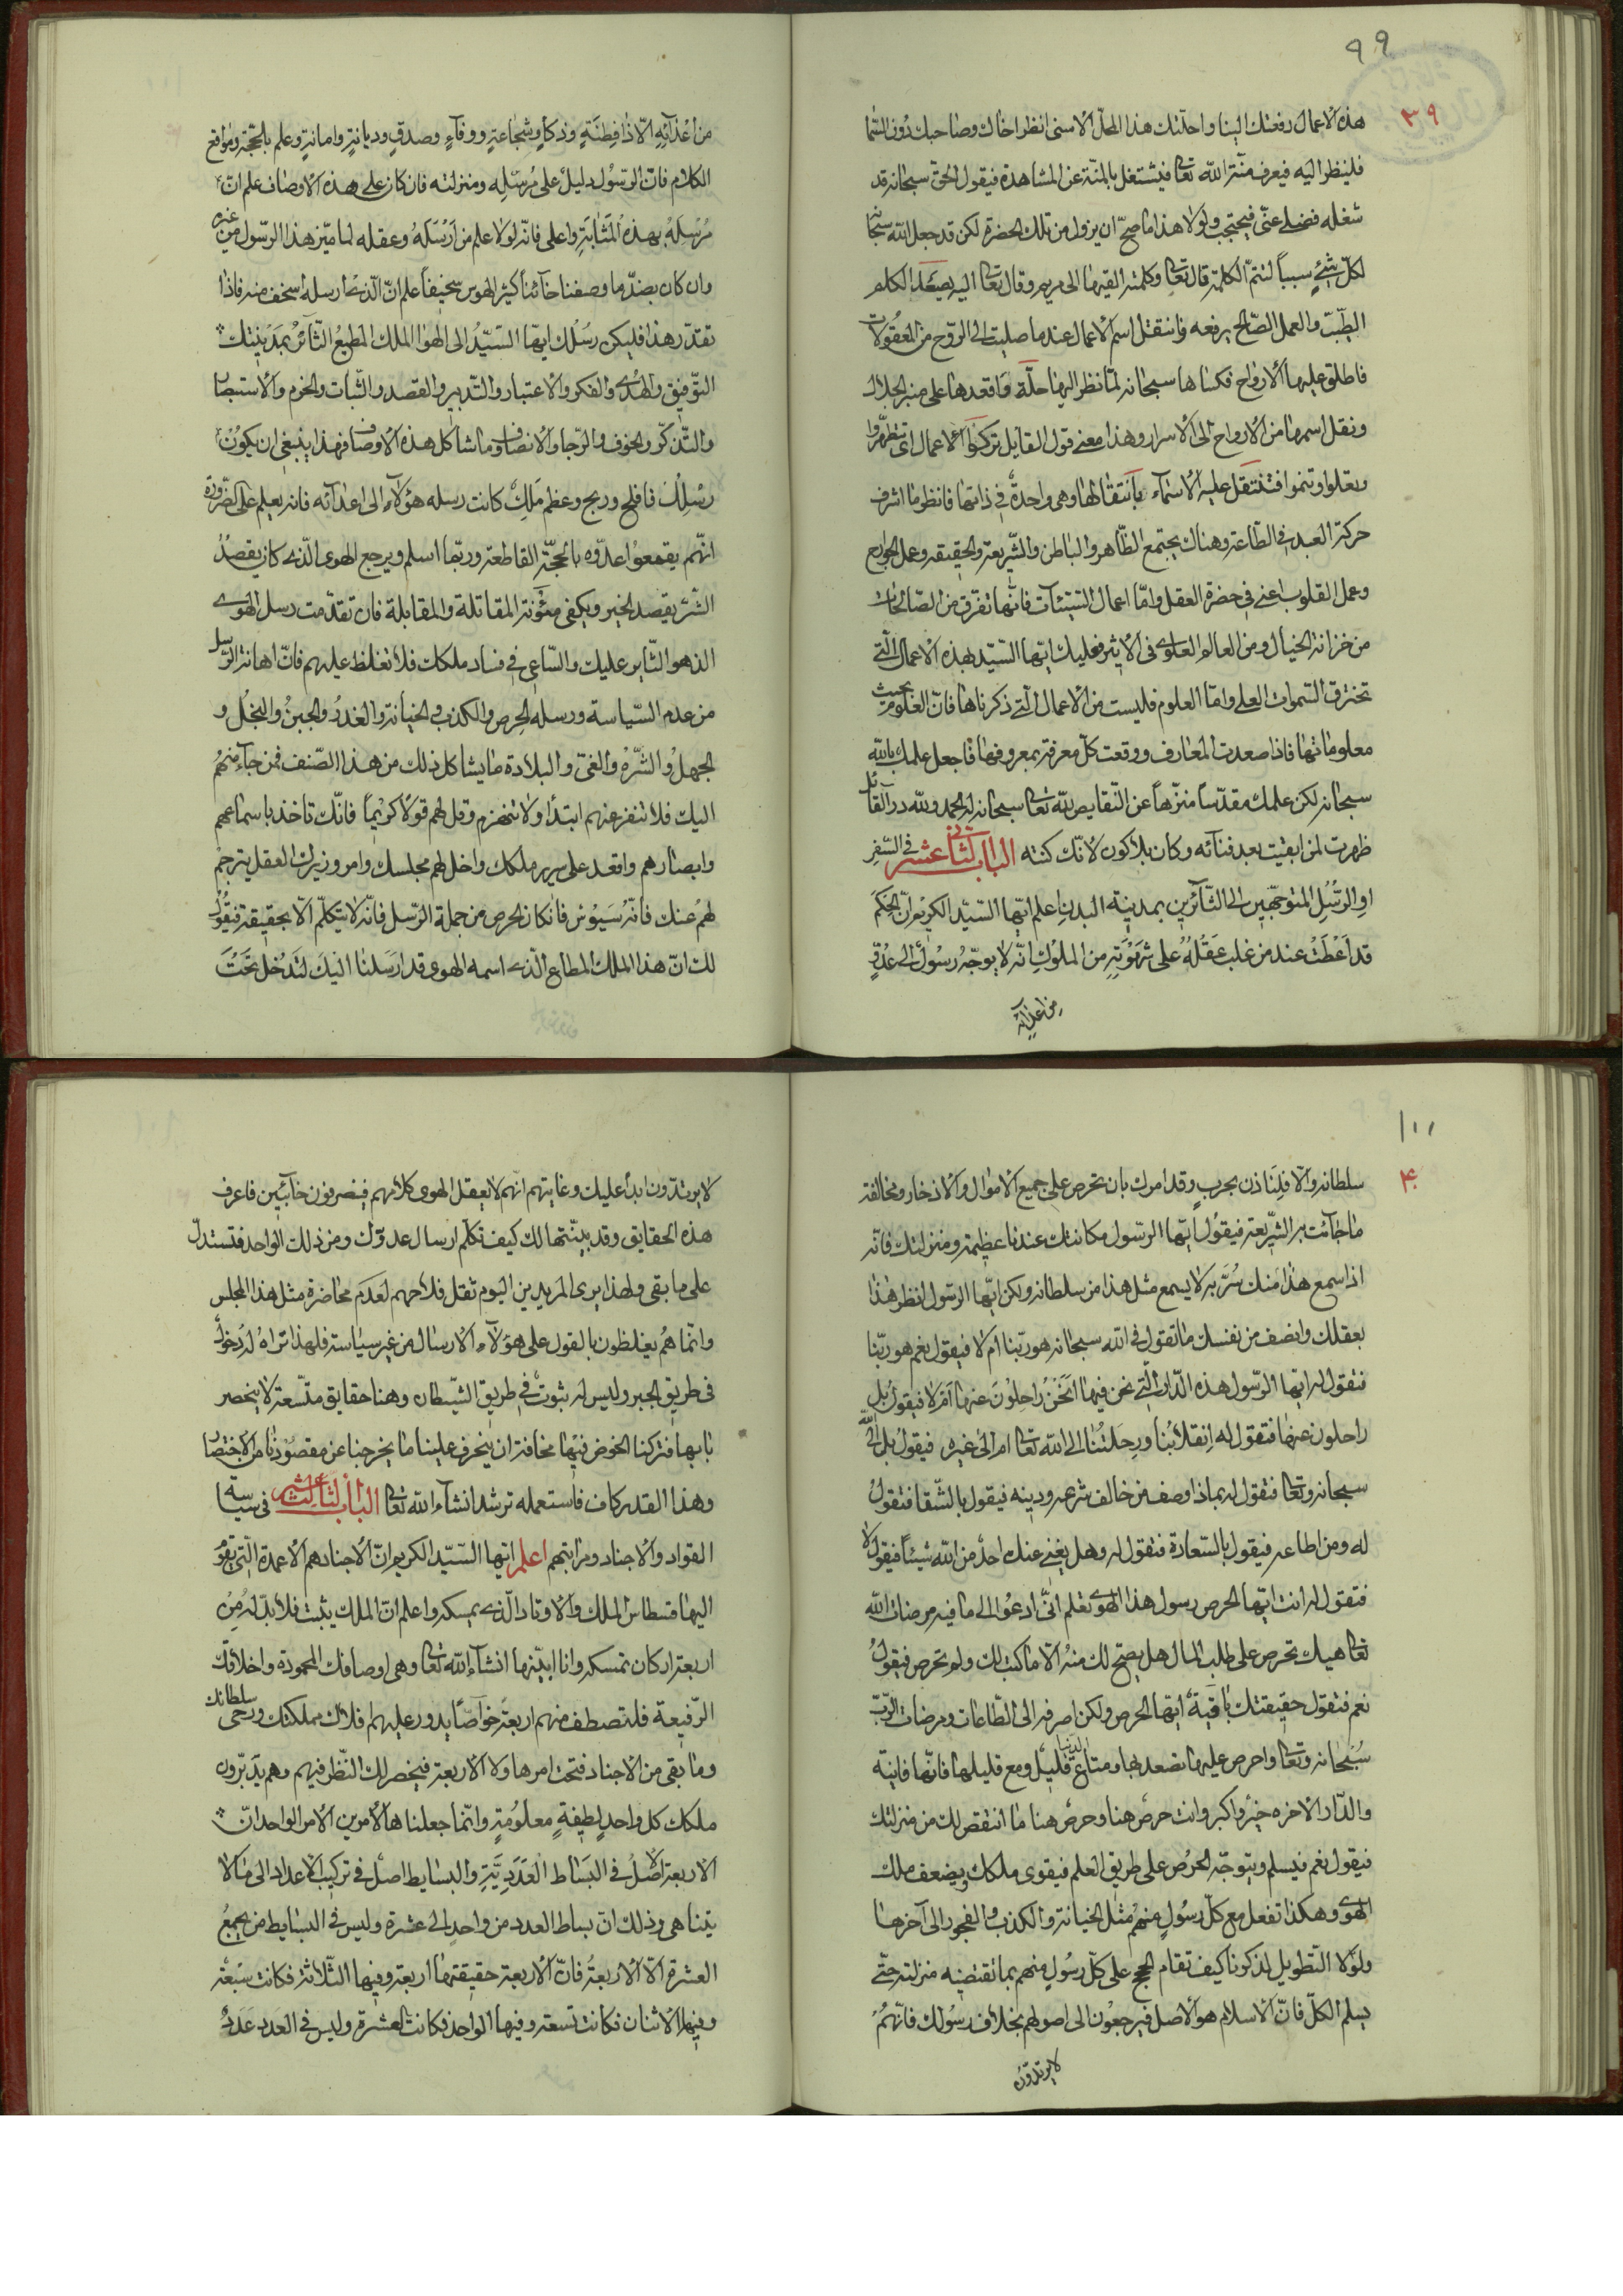 ٩٩
٣٩
هذه الاعمال رفعتك الينا واحلّتك هذا المحلّ الاسنى انظر اخاك وصاحبك دون السّما
فلينظر اليه فيعرف منّة الله تعا فيشتغل بالمنّة عن المشاهدة فيقول الحقّ سبحانه قد
شغله فضلى عنّى فيحتجب ولولا هذا ماصحّ ان ينزل من تلك الحضرة لكن قد جعل الله سبحانه
لكلّ شئٍ سبباً لتتمّ الكلمة قال تعا وكلمته القيها الى مريم وقال تعا اليه يصعد الكلم
الطيّب والعمل الصّالح يرفعه فانتقل اسم الاعمال عند ما صليت الى الرّوح من المعقولات
فاطلق عليها الارواح فكساها سبحانه لمّا نظر اليها حلّة واقعدها على منبر الجلال
ونقل اسمها من الارواح الى الاسرار وهذا معنى قول القايل تزكوا الاعمال اى تتطهّروا
وتعلوا وتنموا فتنتقل عليه الاسماء بانتقالها وهى واحدة فى ذاتها فانظر ما اشرف
حركة العبد فى الطّاعة وهناك يجتمع الظّاهر والباطن والشّريعة والحقيقه وعمل الجوارح
وعمل القلوب اعنى فى حضرة العقل وامّا اعمال السّيّئآت فانّها تفرّق من الصّالحات
من خزانة الخيال ومن العالم العلوى فى الاثير فعليك ايّها السّيّد بهذه الاعمال الّتى
تخترق السّموات العلى وامّا العلوم فليست من الاعمال الّتى ذكرناها فانّ العلوم بحيث
معلوماتها فاذا صعدت المعارف ووقعت كلّ معرفة بمعروفها فاجعل علمك بالله
سبحانه لكن علمك مقدّساً منزّهاً عن النّقايص لله تعا سبحانه له الحمد ولله در القائل
ظهرت لمن ابقيت بعد فنآئه وكان بلاكون لانّك كنته الباب الثانى عشر فى السّفر
او الرّسل المتوجّهين الى الثّآئرين بمدينة البدن اعلم ايّها السّيّد الكريم انّ الحكم
قد اعطت عند من غلب عقله على شهوته من الملوك انّه لا يوجّه رسول الى عدوّ
من اعدآئه
من اعدآئه الّا ذا فطنةٍ وذكاءٍ وشجاعةٍ ووفآءٍ وصدقٍ وديانةٍ وامانةٍ وعلم بالحجّة ومواقع
الكلام فانّ الرّسول دليل على مُرسِله ومنزلته فان كان على هذه الاوصاف علم انّ
مُرسِلهُ بهذه المثابة واعلى فانّه لولا علم من ارسله وعقله لما ميّز هذا الرّسول من غيره
وان كان بضدّ ما وصفنا خآئناً كثير الهوس سخيفاً علم انّ الّذى ارسله اسخف منه فاذا
تقدّر هذا فليكن رسلك ايّها السّيّد الى الهوا الملك المطيع الثّآئر بمدينتك
التّوفيق والهدى والفكر والاعتبار والتّدبير والقصد والثّبات والحزم والاستبصار
والتّذكّر والخوف والرّجا والانصاف وما شاكل هذه الاوصاف فهذا ينبغى ان يكون
رسلك فافلح وربح وعظم ملك كانت رسله هؤلآء الى اعدآئه فانه يعلم على الضّرورة
انّهم يقمعوا عدوّه بالحجّة القاطعة وربّما اسلم ويرجع الهوى الّذى كان يقصد
الشّرّ يقصد الخير ويكفى مئونة المقاتلة والمقابلة فان تقدّمت رسل الهوى
الذى هو الثّاير عليك والسّاعى فى فساد ملكك فلا تغلظ عليهم فانّ اهانة الرّسل
من عدم السّياسة ورسله الحرص والكذب والخيانة والغدر والجبن والبخل و
الجهل والشّره والغىّ والبلادة ما يشاكل ذلك من هذا الصّنف فمن جآء منهم
اليك فلا تنفر عنهم ابتداً ولا تنهزم وقل لهم قولاً كريماً فانّك تاخذ باسماعهم
وابصارهم واقعد على سرير ملكك وادخل لهم مجلسك وامر وزيرك العقل يترجم
لهم عنك فانّه سَيُوس فان كان الحرص من جملة الرّسل فانّه لا يتكلّم الّا بحقيقة فيقول
لك انّ هذا الملك المطاع الّذى اسمه الهوى قد ارسلنا اليك لتدخل تحت
١٠١
٤٠
سلطانه والّا فلتأذن بحربٍ وقد امرك بان تحرص على جميع الاموال والاذخار ومخالفة
ما جائت به الشّريعة فيقول ايّها الرّسول مكانتك عندنا عظيمة ومنزلتك فانّه
اذا سمع هذا منك سُرّ به لا يسمع مثل هذا من سلطانه ولكن ايّها الرّسول انظر هذا
بعقلك وانصف من نفسك ما تقول فى الله سبحانه هو ربّنا ام لا فيقول نعم هو ربّنا
فتقول له ايّها الرّسول هذه الدّار الّتى نحن فيها انحن راحلون عنها ام لا فيقول بل
راحلون عنها فتقول له انقلابنا ورحلتنا الى الله تعا ام الى غيره فيقول بل الى الله
سبحانه وتعا فتقول له بماذا وصف من خالف شرعه ودينه فيقول بالشّقا فتقول
له ومن اطاعه فيقول بالسّعادة فتقول له وهل يغنى عنك احد من الله شيئاً فيقول لا
فتقول له انت ايّها الحرص رسول هذا الهوى تعلم انّى ادعوا الى ما فيه مرضات الله
تعا هبك تحرص على طلب المال هل يصحّ لك منه الّا ما كتب لك ولو تحرص فيقول
نعم فتقول حقيقتك باقية ايّها الحرص ولكن اصرفه الى الطّاعات ومرضات الرّبّ
سبحانه وتعا واحرص عليها تسعد بها ومتاع الدنيا قليل ومع قليلها فانّها فانية
والدّار الاخره خير واكبر وانت حرص هنا وحرص هنا ما انتقص لك من منزلتك
فيقول نعم فيسلم ويتوجّه الحرص على طريق العلم فيقوى ملكك ويضعف ملك
الهوى وهكذا تفعل مع كلّ رسول منهم مثل الخيانة والكذب والفجور الى آخرها
ولولا التّطويل لذكرنا كيف تقام الحجج على كلّ رسول منهم بما تقتضيه منزلته حتّى
يسلم الكلّ فانّ الاسلام هو الاصل فيرجعون الى اصولهم بخلاف رسولك فانّهم
لا يرتدون
لا يرتدّون ابداً عليك وغايتهم انّهم لا يعقل الهوى كلامهم فينصرفون خآئبين فاعرف
هذه الحقايق وقد بيّنتها لك كيف تكلّم ارسال عدوّك ومن ذلك الواحد فتستدلّ
على ما بقى ولهذا يرى المريدين اليوم تقل فلاحهم لعدم محاضرة مثل هذا المجلس
وانّما هم يغلظون بالقول على هؤلآء الارسال من غير سياسة فلهذا تراه له دخول
فى طريق الجبر وليس له ثبوت فى طريق الشّيطان وهنا حقايق متّسعة لا ينحصر
بابها فتركنا الخوض فيها مخافة ان ينحرف علينا ما يخرجنا عن مقصودنا من الاختصار
وهذا القدر كاف فاستعمله ترشد انشآء الله تعا الباب الثالث عشر فى سياسة
القواد والاجناد ومراتبهم اعلم ايّها السّيّد الكريم انّ الاجناد هم الاعمدة الّتى يقوم
اليها فسطاس الملك والاوتاد الّذى يمسكه واعلم انّ الملك يثبت فلا بدّ له من
اربعة اركان تمسكه وانا ابيّنها انشآء الله تعا وهى اوصافك المحمودة واخلاقك
الرّفيعة فلتصطف منهم اربعة خواصّاً يدور عليهم افلاك مملكتك ورحى سلطانك
وما بقى من الاجناد فتحت امر هاولا الاربعة فينحصر لك النّظر فيهم وهم يدبّرون
ملكك كل واحدٍ لطيفةٍ معلومةٍ وانّما جعلنا ها لامرين الامر الواحد انّ
الاربعة اصل فى البساط العددية والبسايط اصل فى تركيب الاعداد الى ما لا
يتناهى وذلك ان بساط العدد من واحد الى عشرة وليس فى البسايط من يجمع
العشرة الّا الاربعة فانّ الاربعة حقيقتها اربعة وفيها الثّلاثة فكانت سبعة
وفيها الاثنان فكانت تسعة وفيها الواحد فكانت العشرة وليس فى العدد عدد